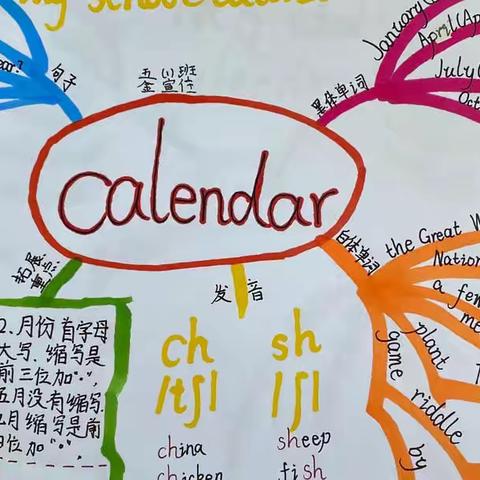 my school calendar
句子
五(1)班
黑体单词
January (
April (Ap
July (
Oct
calendar
白体单词
the Great W
Nation
a few
me
plant
game
riddle
by
发音
ch sh
/tʃ/ /ʃ/
china sheep
chicken fish
2、月份首字母
大写、缩写是
前三位加“.”,
五月没有缩写.
九月缩写是前
四位加“.”,